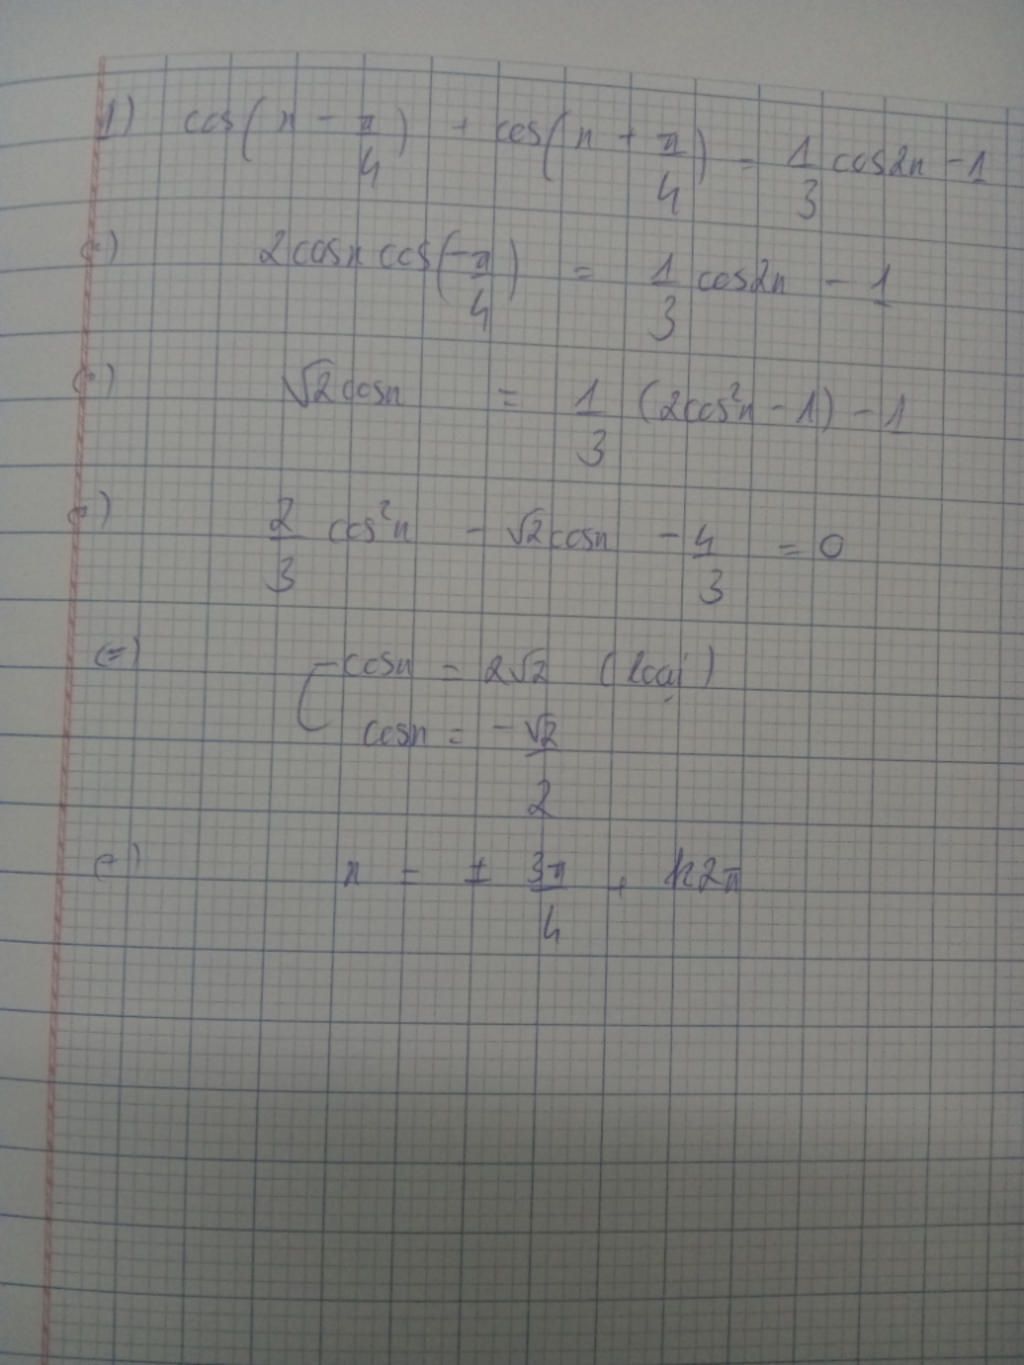 1) cos(x - π/4) + cos(x + π/4) = 1/3 cos2x - 1
(=) 2cosx cos(-π/4) = 1/3 cos2x - 1
(=) √2cosx = 1/3 (2cos²x - 1) - 1
(=) 2/3 cos²x - √2cosx - 4/3 = 0
(=) [ cosx = 2√2 (loại)
cosx = -√2/2
(=) x = ± 3π/4 + k2π